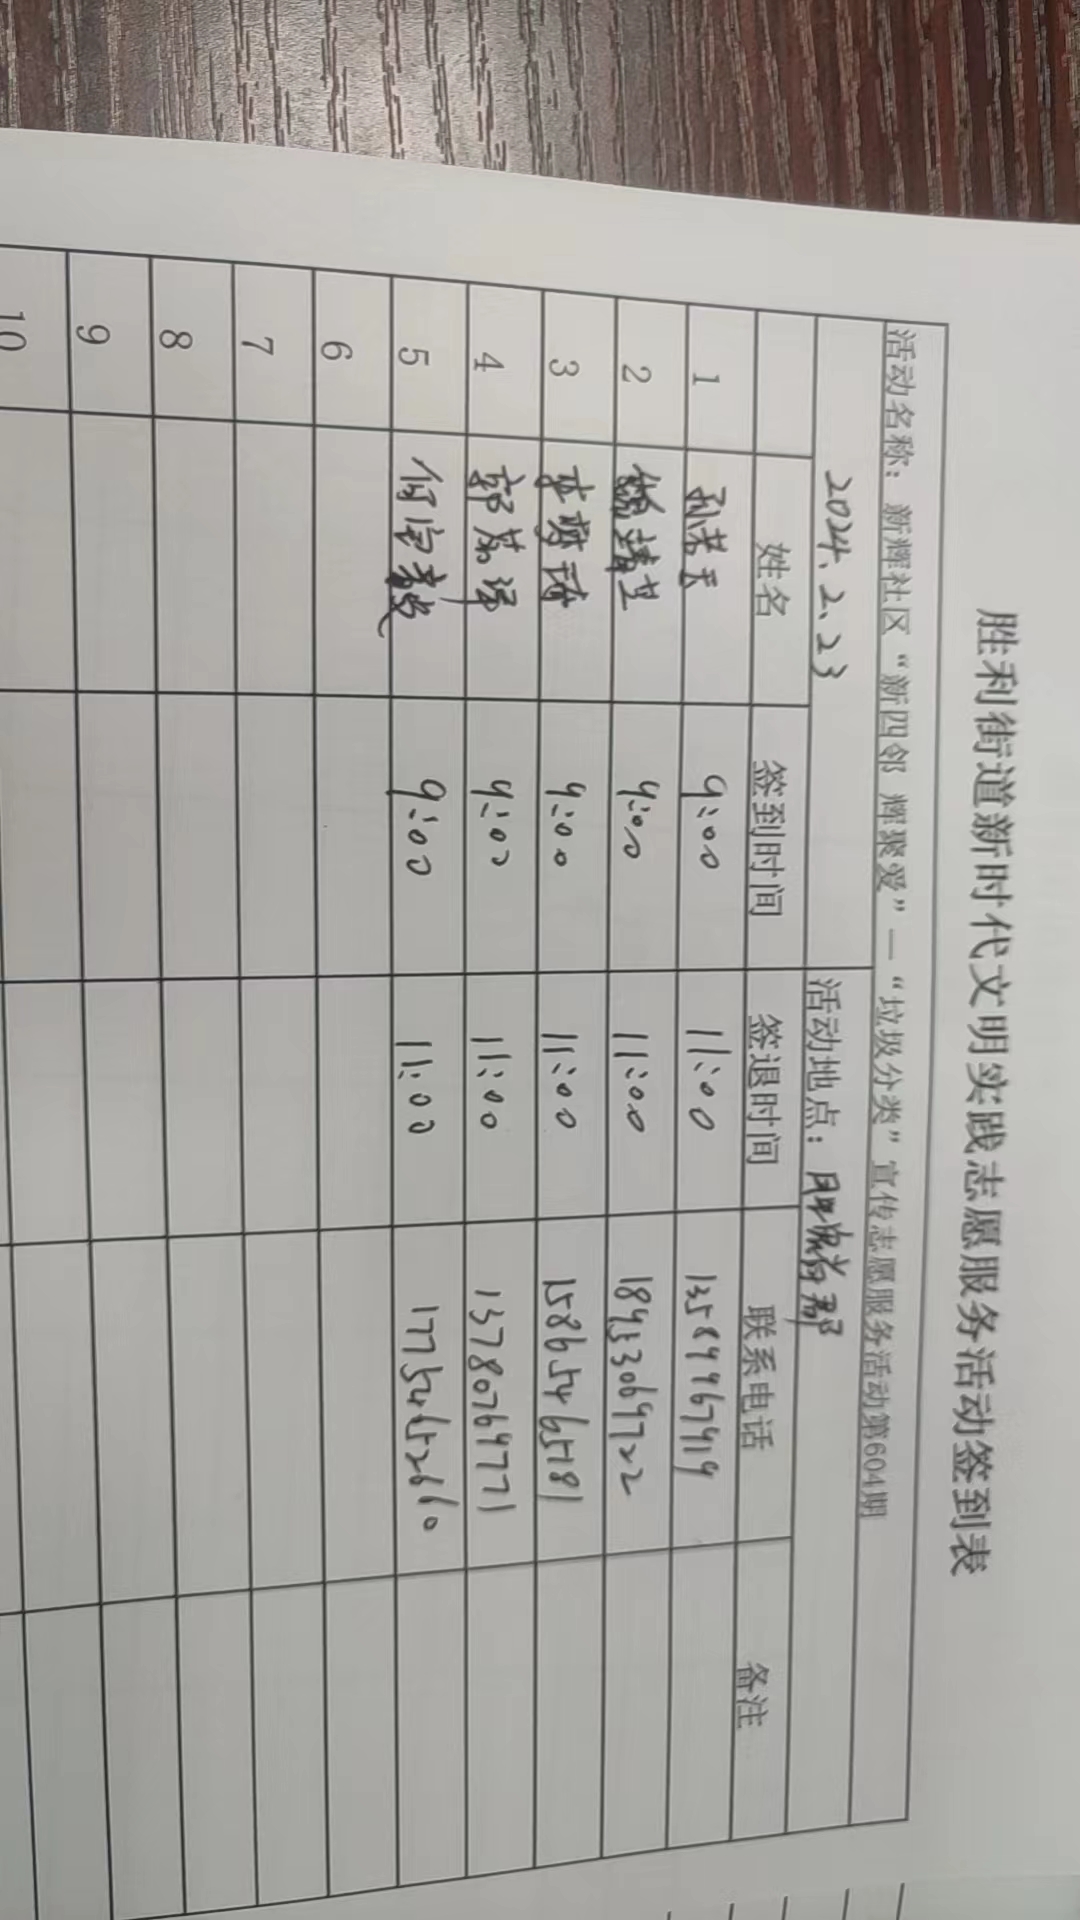 胜利街道新时代文明实践志愿服务活动签到表
活动名称：新辉社区“新四邻 辉聚爱”—“垃圾分类”宣传志愿服务活动第604期
2024.2.23 活动地点：
姓名 签到时间 签退时间 联系电话 备注
1 孙若云 9:00 11:00 13589967919
2 9:00 11:00 18933069722
3 9:00 11:00 15865465181
4 郭 9:00 11:00 13780769771
5 何宝 9:00 11:00 17754652660
6
7
8
9
10